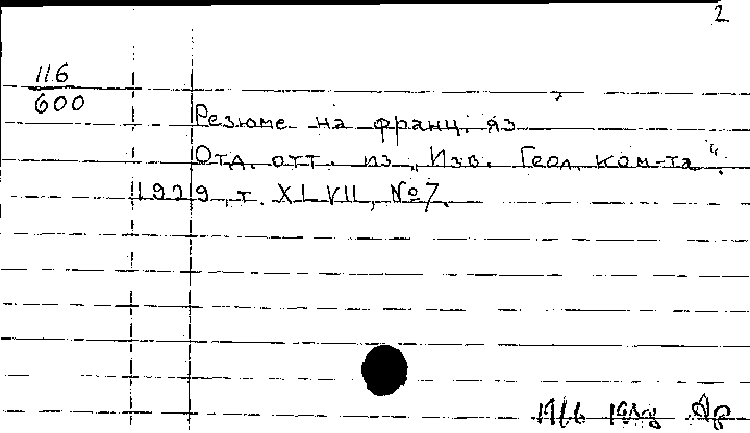 2
116
600
Резюме на франц. яз
Отд. отт. из „Изв. Геол. ком-та“.
1929, т. XLVII, №7.